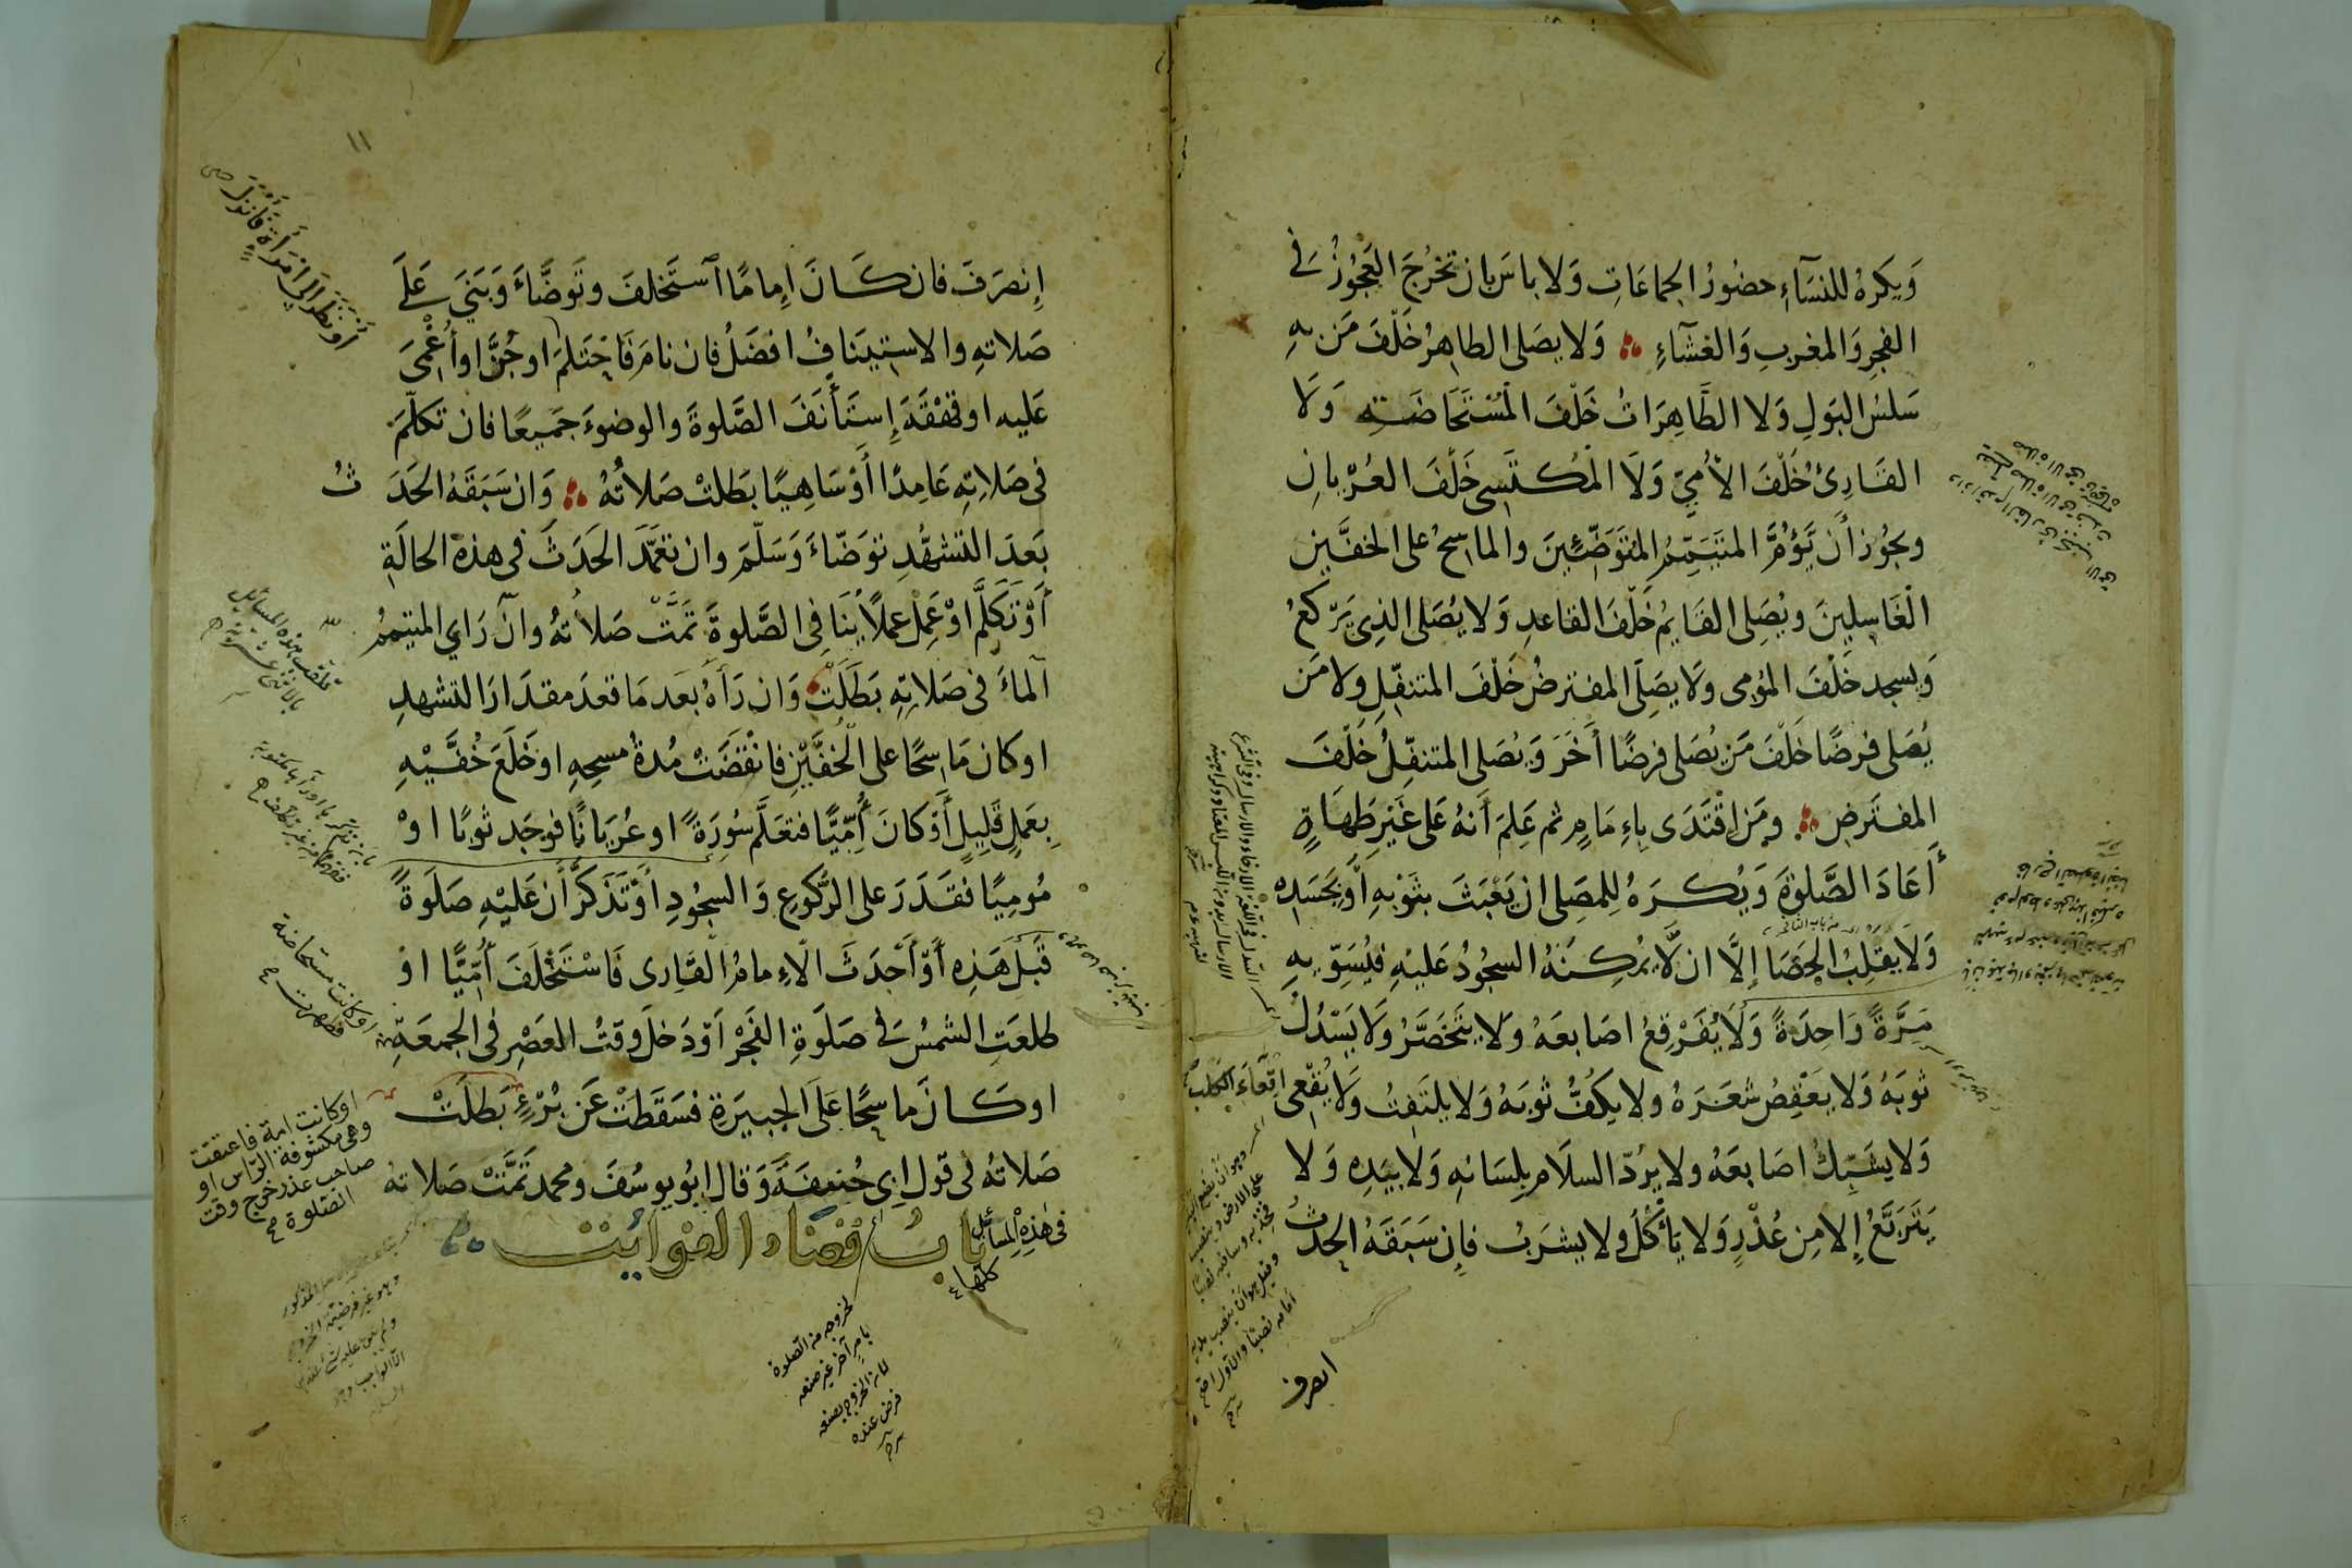 وَيكرهُ للنسَآءِ حضُورُ الجماعَاتِ وَلا باسَ بان تخرُجَ العَجُوزُ فى
الفجرِ وَالمغربِ وَالعشآءِ وَلا يصَلى الطاهِرُ خَلْفَ مَن بهِ
سَلسُ البَولِ وَلا الطَّاهِرَاتُ خَلْفَ المُسْتَحَاضَتِهِ وَلَا
القَارِئُ خَلْفَ الأُمِيِّ وَلَا المُكتَسِى خَلْفَ العُرْيانِ
ويجُوز أن يَؤُمَّ المتَيَمِّمُ المتَوَضِّئِينَ والماسِحُ على الخفَّينِ
الْغَاسِلِينَ ويُصَلِى القَايمُ خَلْفَ القاعدِ وَلا يُصَلى الذِى يَرْكعُ
وَيسجد خَلْفَ المُومى وَلا يصَلِى المفترضُ خَلْفَ المتنفّلِ ولا مَن
يُصَلى فرضًا خَلْفَ مَن يُصَلى فرضًا أخَرَ وَيُصَلى المتنفّلُ خَلْفَ
المفترَضِ ومَن اقْتَدَى بِاءِمَامٍ ثم عَلِمَ أَنهُ عَلى غَيْرِ طَهَارَةٍ
أَعَادَ الصَّلوٰةَ وَيُكرَهُ لِلمصَلى ان يَعْبَثَ بثَوْبِهِ أَوْ بجَسَدِهِ
وَلا يقلِبُ الحصَا إلَّا ان لَّا يمُكِنَهُ السجُودُ عَليْهِ فيُسَوِّيهِ
مَرَّةً وَاحِدَةً وَلَا يُفَرْقِعُ اصَابعَهُ وَلا يتَخَصَّرُ وَلا يَسْدُلُ
ثوبَهُ وَلا يعَقِصُ شعَرَهُ ولا يكُفُّ ثوبَهُ وَلا يلتَفِتُ وَلا يُقْعِى اقعَاءَ الكلب
وَلا يشَبِّكُ اصَابعَهُ ولا يرُدّ السلَام بِلسَانهِ وَلا بيَدِهِ وَلا
يَتَرَبَّعُ إلا مِن عُذْرٍ وَلا يَأكُلُ ولا يشرَبُ فإن سَبَقَهُ الحدثُ
انصرف
١١
إنصَرَفَ فان كَانَ اِمامًا استَخلفَ وتَوَضَّاءَ وَبَنَى عَلَى
صَلاتهِ والاستِينَافُ افضَلُ فان نامَ فَاحْتَلمَ او جُنَّ او أُغْمِىَ
عَليه او قهْقَهَ إستَأْنَفَ الصَّلوةَ والوضوءَ جَميعًا فان تَكلّمَ
فى صَلاتِهِ عَامِدًا أَوْ سَاهِيًا بَطَلتْ صَلاتُهُ وَان سَبَقَهُ الحَدَثُ
بَعدَ التشهُّدِ توَضّاءَ وَسَلّمَ وان تعَمَّدَ الحَدَثَ فى هذه الحالَةِ
أَوْ تَكَلَّمَ اوْ عَمِلَ عملًا يُنَافى الصَّلوةَ تَمَّتْ صَلاتهُ وان رَاي المتيَممُ
الماءَ فى صَلاتِهِ بَطَلَتْ وَان رَأهُ بعَد مَا قعدَ مقدَارَ التشهدِ
او كان مَاسِحًا على الخُفَّيْنِ فانْقَضَتْ مُدةُ مسحِهِ او خَلَعَ خُفَّيْهِ
بِعَملٍ قَلِيلٍ أوْ كانَ أُمِّيًّا فتعَلَّم سُورَةً او عُريَانًا فوجَد ثوبًا اوْ
مُومِيًا فقَدَرَ على الرُّكوعِ وَالسجُودِ أَوْ تَذَكرَّ أن عَليْهِ صَلَوةً
قبَلَ هَذِهِ أَوْ أَحْدَثَ الاءِمامُ القَارِى فَاسْتَخْلَفَ أُمِّيًّا اوْ
طلعَتِ الشمسُ فى صَلَوةِ الفَجْرِ اوْ دَخلَ وقتُ العَصْرِ فى الجمعَةِ
او كانَ ماسِحًا عَلَى الجبيرَةِ فسَقطَتْ عَن بُرْءٍ بَطلَتْ
صَلاتهُ فى قول ابى حَنيفَةَ وَقال ابُو يوسُفَ ومحمد تَمَّتْ صَلاتهُ
فى هٰذِهِ المسَائلِ كلها
بابُ قضاء الفوائت
أوْ نظَرَ الى امْرَأةٍ فَانْزَلَ
تلقب هذه المسائل
بالاثنى عشرية
او كانت مستحاضة
فطهرت
او كانت امة فاعتقت
وهى مكشوفة الرّاس او
صاحب عذر خرج وقت
الصّلوة
لخروجه من الصلوة
بامر آخر غير صنعه
لان الخروج بصنعه
فرض عنده